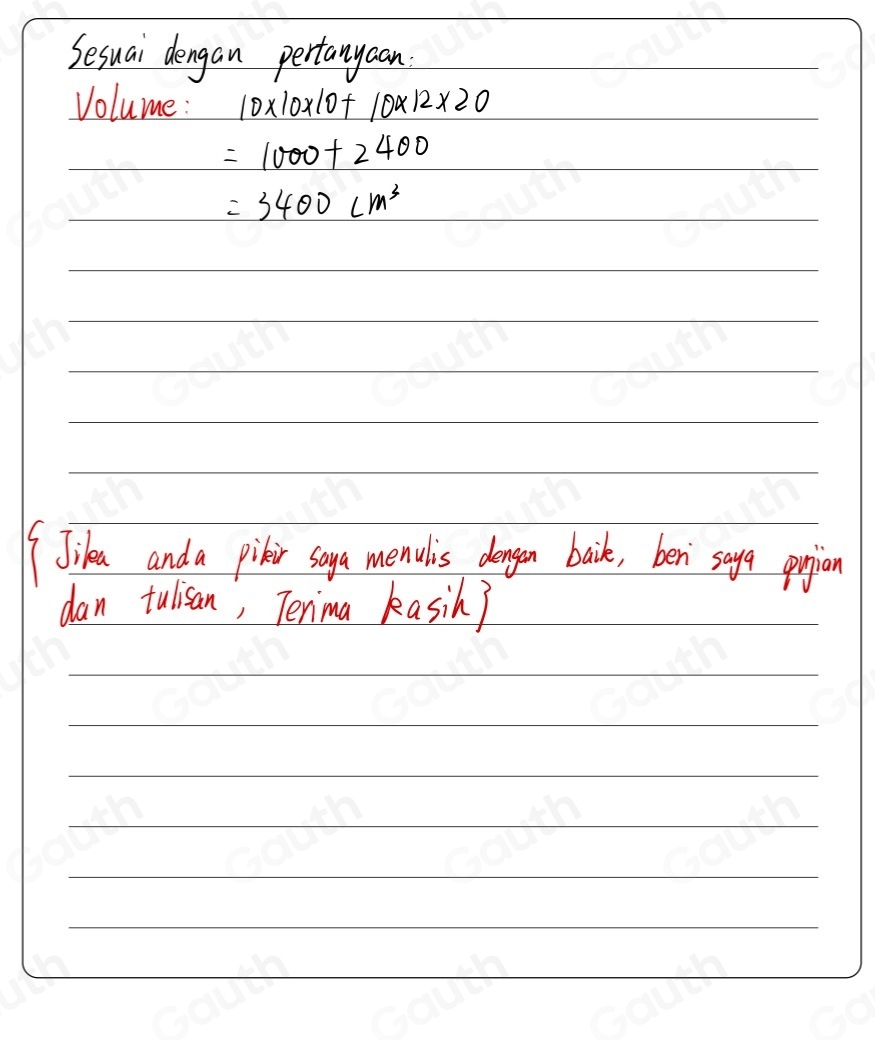 Sesuai dengan pertanyaan:
Volume: 10x10x10+ 10x12x20
= 1000+2400
= 3400 cm³
{Jika anda pikir saya menulis dengan baik, beri saya pujian
dan tulisan, Terima kasih}